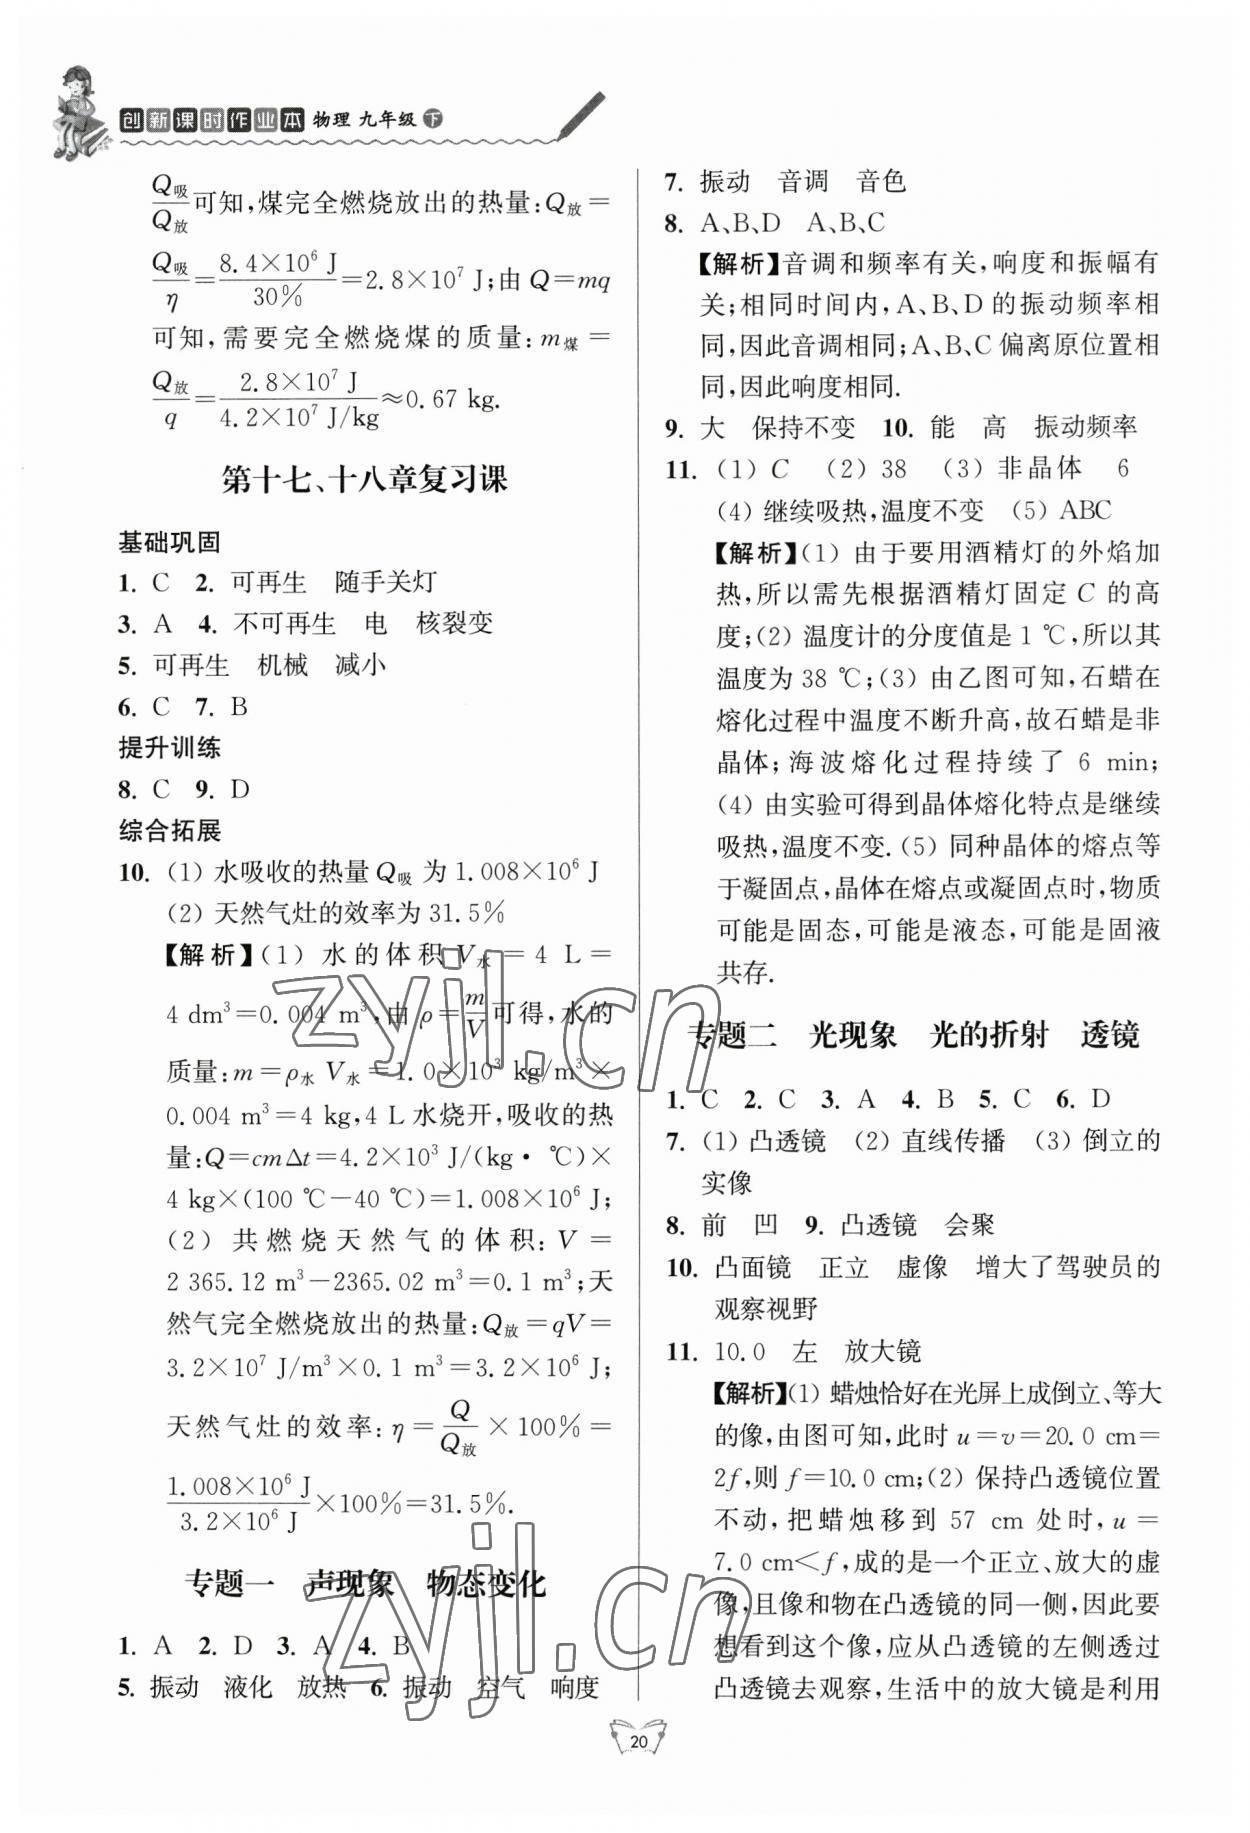 创新课时作业本 物理 九年级 下
Q吸/Q放可知,煤完全燃烧放出的热量:Q放=
Q吸/η=8.4×10⁶ J/30%=2.8×10⁷ J;由 Q=mq
可知,需要完全燃烧煤的质量:m煤=
Q放/q=2.8×10⁷ J/4.2×10⁷ J/kg≈0.67 kg.
第十七、十八章复习课
基础巩固
1. C 2. 可再生 随手关灯
3. A 4. 不可再生 电 核裂变
5. 可再生 机械 减小
6. C 7. B
提升训练
8. C 9. D
综合拓展
10. (1) 水吸收的热量 Q吸 为 1.008×10⁶ J
(2) 天然气灶的效率为 31.5%
【解析】(1) 水的体积 V水=4 L=
4 dm³=0.004 m³,由 ρ=m/V可得,水的
质量:m=ρ水 V水=1.0×10³ kg/m³×
0.004 m³=4 kg,4 L 水烧开,吸收的热
量:Q=cmΔt=4.2×10³ J/(kg·℃)×
4 kg×(100 ℃-40 ℃)=1.008×10⁶ J;
(2) 共燃烧天然气的体积:V=
2 365.12 m³-2365.02 m³=0.1 m³;天
然气完全燃烧放出的热量:Q放=qV=
3.2×10⁷ J/m³×0.1 m³=3.2×10⁶ J;
天然气灶的效率:η=Q/Q放×100%=
1.008×10⁶ J/3.2×10⁶ J×100%=31.5%.
专题一 声现象 物态变化
1. A 2. D 3. A 4. B
5. 振动 液化 放热 6. 振动 空气 响度
7. 振动 音调 音色
8. A、B、D A、B、C
【解析】音调和频率有关,响度和振幅有
关;相同时间内,A、B、D 的振动频率相
同,因此音调相同;A、B、C 偏离原位置相
同,因此响度相同.
9. 大 保持不变 10. 能 高 振动频率
11. (1) C (2) 38 (3) 非晶体 6
(4) 继续吸热,温度不变 (5) ABC
【解析】(1) 由于要用酒精灯的外焰加
热,所以需先根据酒精灯固定 C 的高
度;(2) 温度计的分度值是 1 ℃,所以其
温度为 38 ℃;(3) 由乙图可知,石蜡在
熔化过程中温度不断升高,故石蜡是非
晶体;海波熔化过程持续了 6 min;
(4) 由实验可得到晶体熔化特点是继续
吸热,温度不变.(5) 同种晶体的熔点等
于凝固点,晶体在熔点或凝固点时,物质
可能是固态,可能是液态,可能是固液
共存.
专题二 光现象 光的折射 透镜
1. C 2. C 3. A 4. B 5. C 6. D
7. (1) 凸透镜 (2) 直线传播 (3) 倒立的
实像
8. 前 凹 9. 凸透镜 会聚
10. 凸面镜 正立 虚像 增大了驾驶员的
观察视野
11. 10.0 左 放大镜
【解析】(1) 蜡烛恰好在光屏上成倒立、等大
的像,由图可知,此时 u=v=20.0 cm=
2f,则 f=10.0 cm;(2) 保持凸透镜位置
不动,把蜡烛移到 57 cm 处时,u=
7.0 cm<f,成的是一个正立、放大的虚
像,且像和物在凸透镜的同一侧,因此要
想看到这个像,应从凸透镜的左侧透过
凸透镜去观察,生活中的放大镜是利用
20
zyjl.cn
zyjl.cn